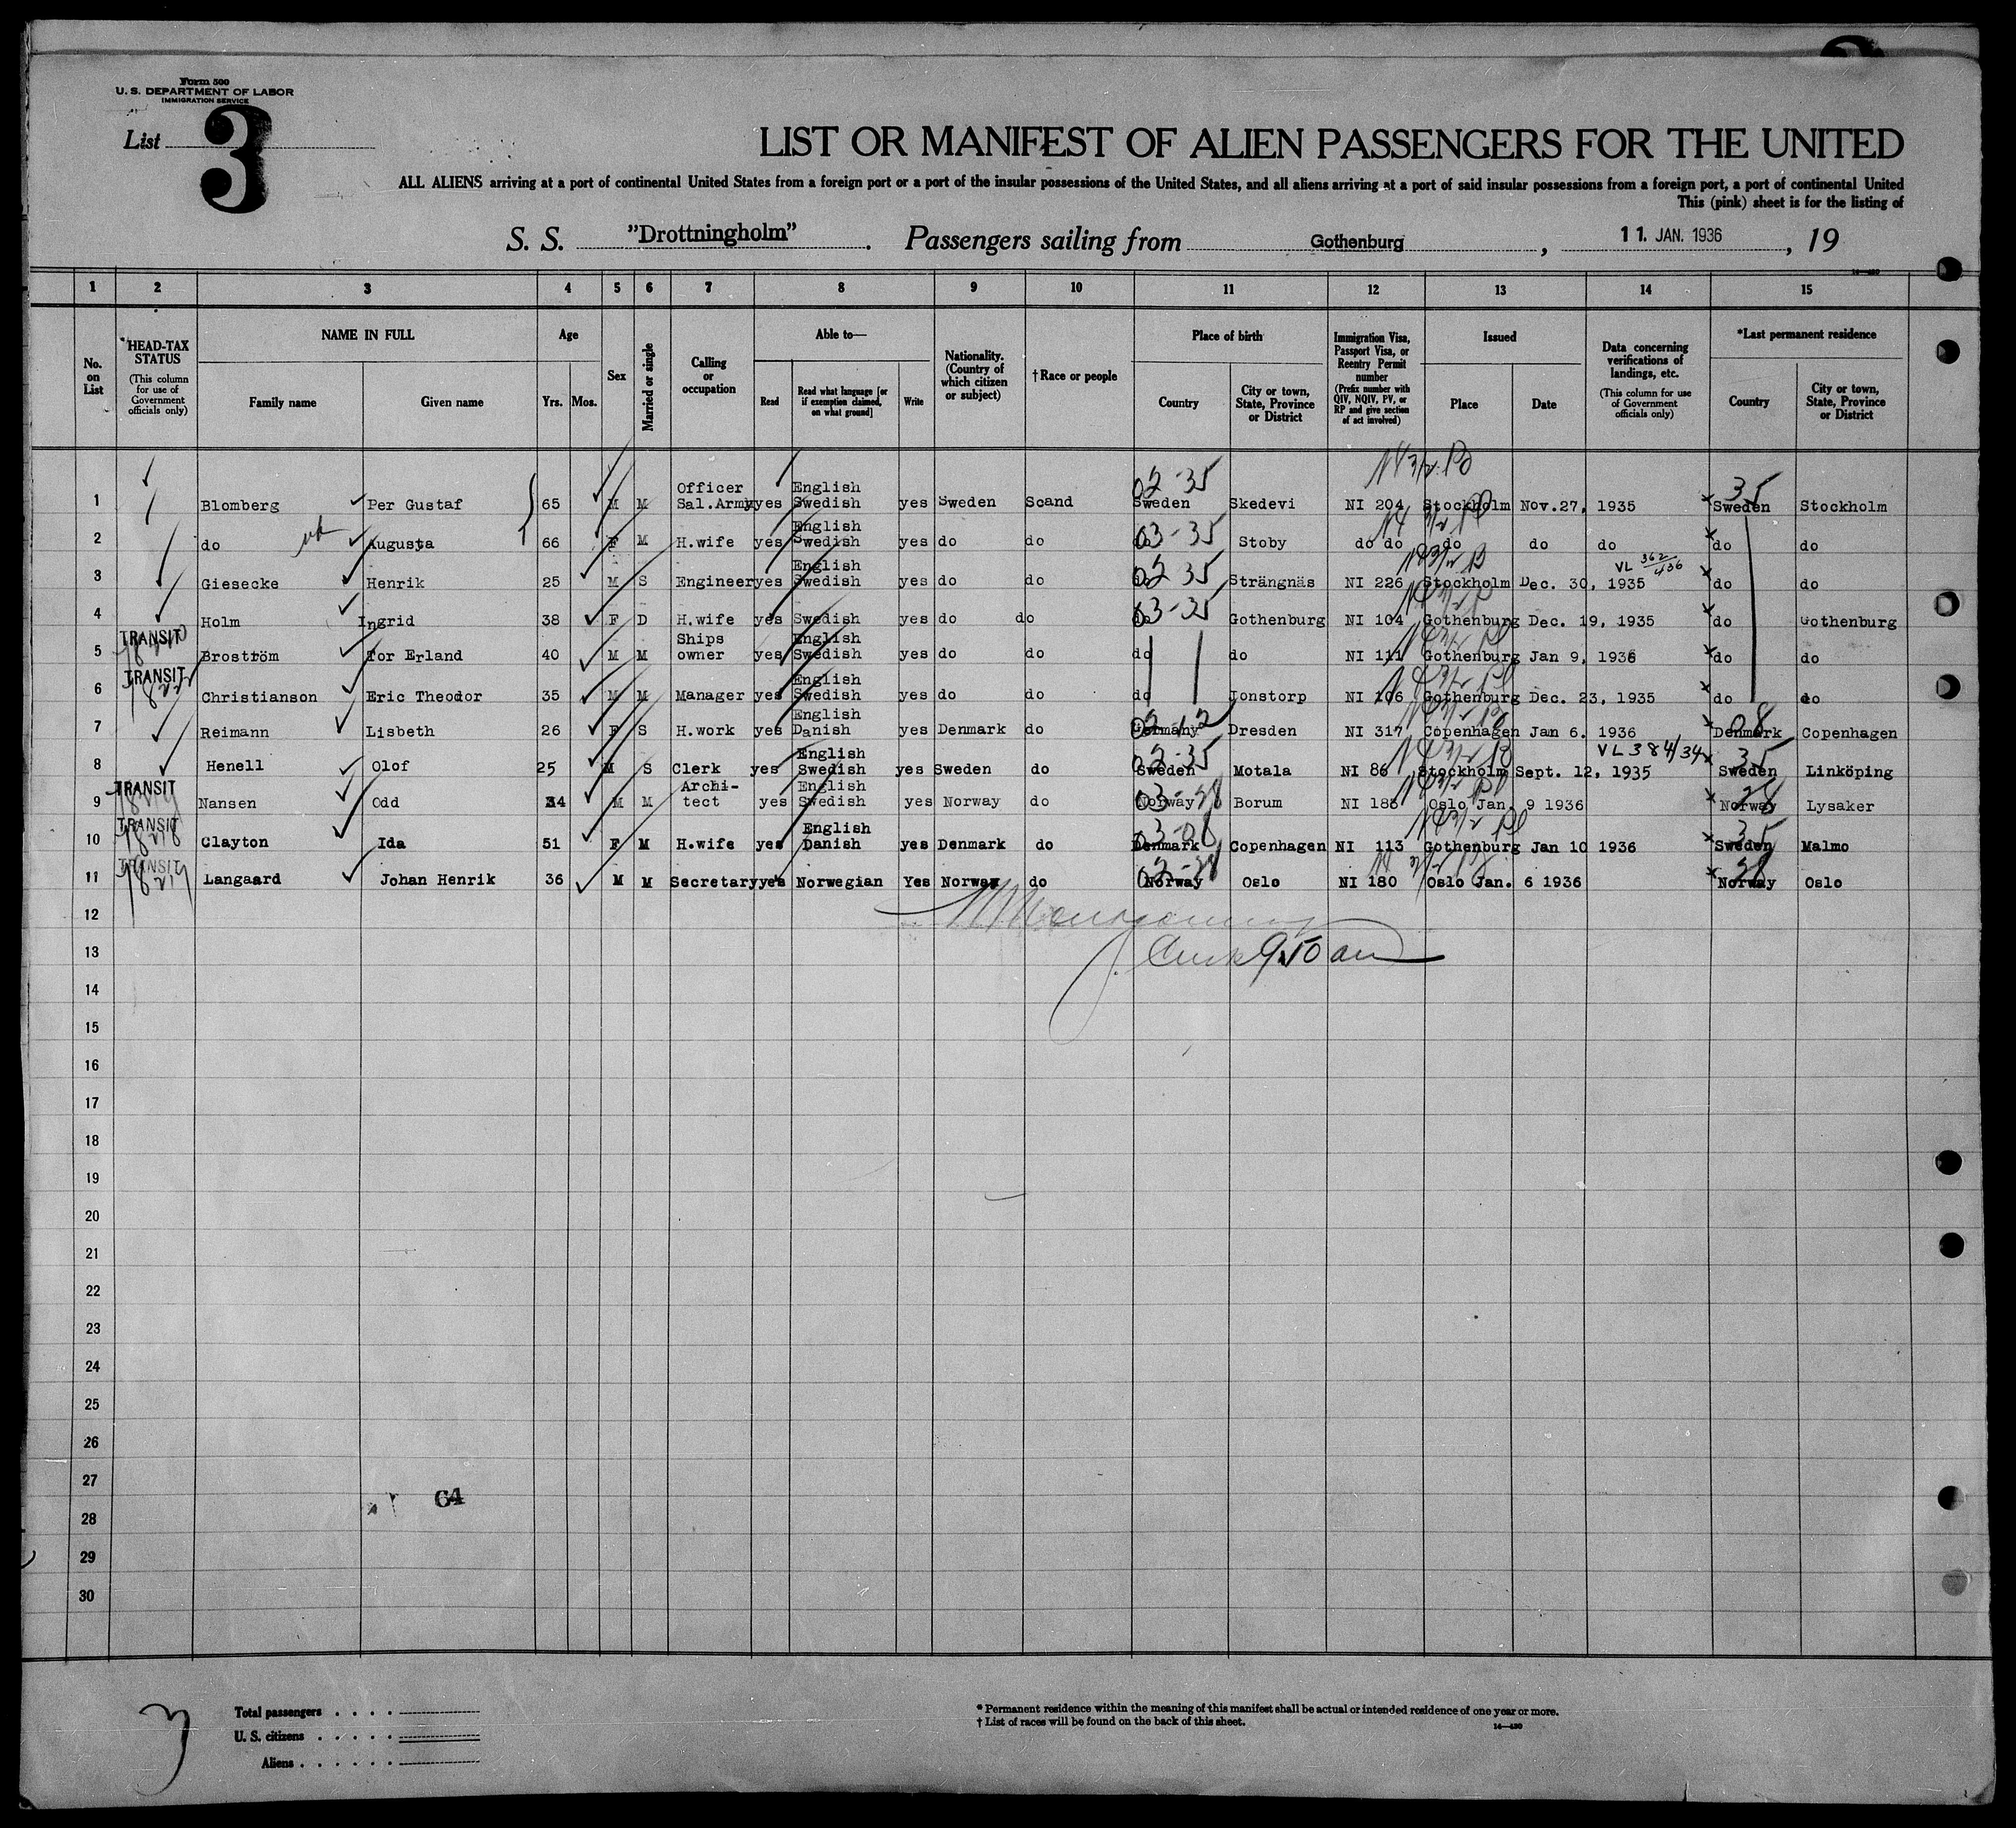 Form 500
U. S. DEPARTMENT OF LABOR
IMMIGRATION SERVICE
List 3
LIST OR MANIFEST OF ALIEN PASSENGERS FOR THE UNITED
ALL ALIENS arriving at a port of continental United States from a foreign port or a port of the insular possessions of the United States, and all aliens arriving at a port of said insular possessions from a foreign port, a port of continental United
This (pink) sheet is for the listing of
S. S. "Drottningholm". Passengers sailing from Gothenburg, 11. JAN. 1936, 19
1 2 3 4 5 6 7 8 9 10 11 12 13 14 15
No. on List
*HEAD-TAX STATUS (This column for use of Government officials only)
NAME IN FULL
Family name Given name
Age
Yrs. Mos.
Sex
Married or single
Calling or occupation
Able to—
Read Read what language [or if exemption claimed, on what ground] Write
Nationality. (Country of which citizen or subject)
†Race or people
Place of birth
Country City or town, State, Province or District
Immigration Visa, Passport Visa, or Reentry Permit number (Prefix number with QIV, NQIV, PV, or RP and give section of act involved)
Issued
Place Date
Data concerning verifications of landings, etc. (This column for use of Government officials only)
*Last permanent residence
Country City or town, State, Province or District
02-35 35
1 Blomberg Per Gustaf 65 M M Officer Sal.Army yes English Swedish yes Sweden Scand Sweden Skedevi NI 204 Stockholm Nov.27, 1935 Sweden Stockholm
03-35
2 do Augusta 66 F M H.wife yes English Swedish yes do do Stoby do do do do do do do
02 35 VL 362/436
3 Giesecke Henrik 25 M S Engineer yes English Swedish yes do do do Strängnäs NI 226 Stockholm Dec. 30, 1935 do do
03-35
4 Holm Ingrid 38 F D H.wife yes Swedish yes do do do Gothenburg NI 104 Gothenburg Dec. 19, 1935 do Gothenburg
TRANSIT
5 Broström Tor Erland 40 M M Ships owner yes English Swedish yes do do do do NI 111 Gothenburg Jan 9, 1936 do do
TRANSIT
6 Christianson Eric Theodor 35 M M Manager yes English Swedish yes do do do Jonstorp NI 106 Gothenburg Dec. 23, 1935 do do
08
7 Reimann Lisbeth 26 F S H.work yes English Danish yes Denmark do Germany Dresden NI 317 Copenhagen Jan 6. 1936 Denmark Copenhagen
02-35 VL 384/34 35
8 Henell Olof 25 M S Clerk yes English Swedish yes Sweden do Sweden Motala NI 86 Stockholm Sept. 12, 1935 Sweden Linköping
TRANSIT 03-28 28
9 Nansen Odd 34 M M Archi-tect yes English Swedish yes Norway do Norway Borum NI 188 Oslo Jan. 9 1936 Norway Lysaker
TRANSIT 03-08 35
10 Clayton Ida 51 F M H.wife yes English Danish yes Denmark do Denmark Copenhagen NI 113 Gothenburg Jan 10 1936 Sweden Malmo
TRANSIT 02-28 28
11 Langaard Johan Henrik 36 M M Secretary yes Norwegian Yes Norway do Norway Oslo NI 180 Oslo Jan. 6 1936 Norway Oslo
12
13 9.50 am
14
15
16
17
18
19
20
21
22
23
24
25
26
27
64
28
29
30
3
Total passengers
U. S. citizens
Aliens
* Permanent residence within the meaning of this manifest shall be actual or intended residence of one year or more.
† List of races will be found on the back of this sheet.